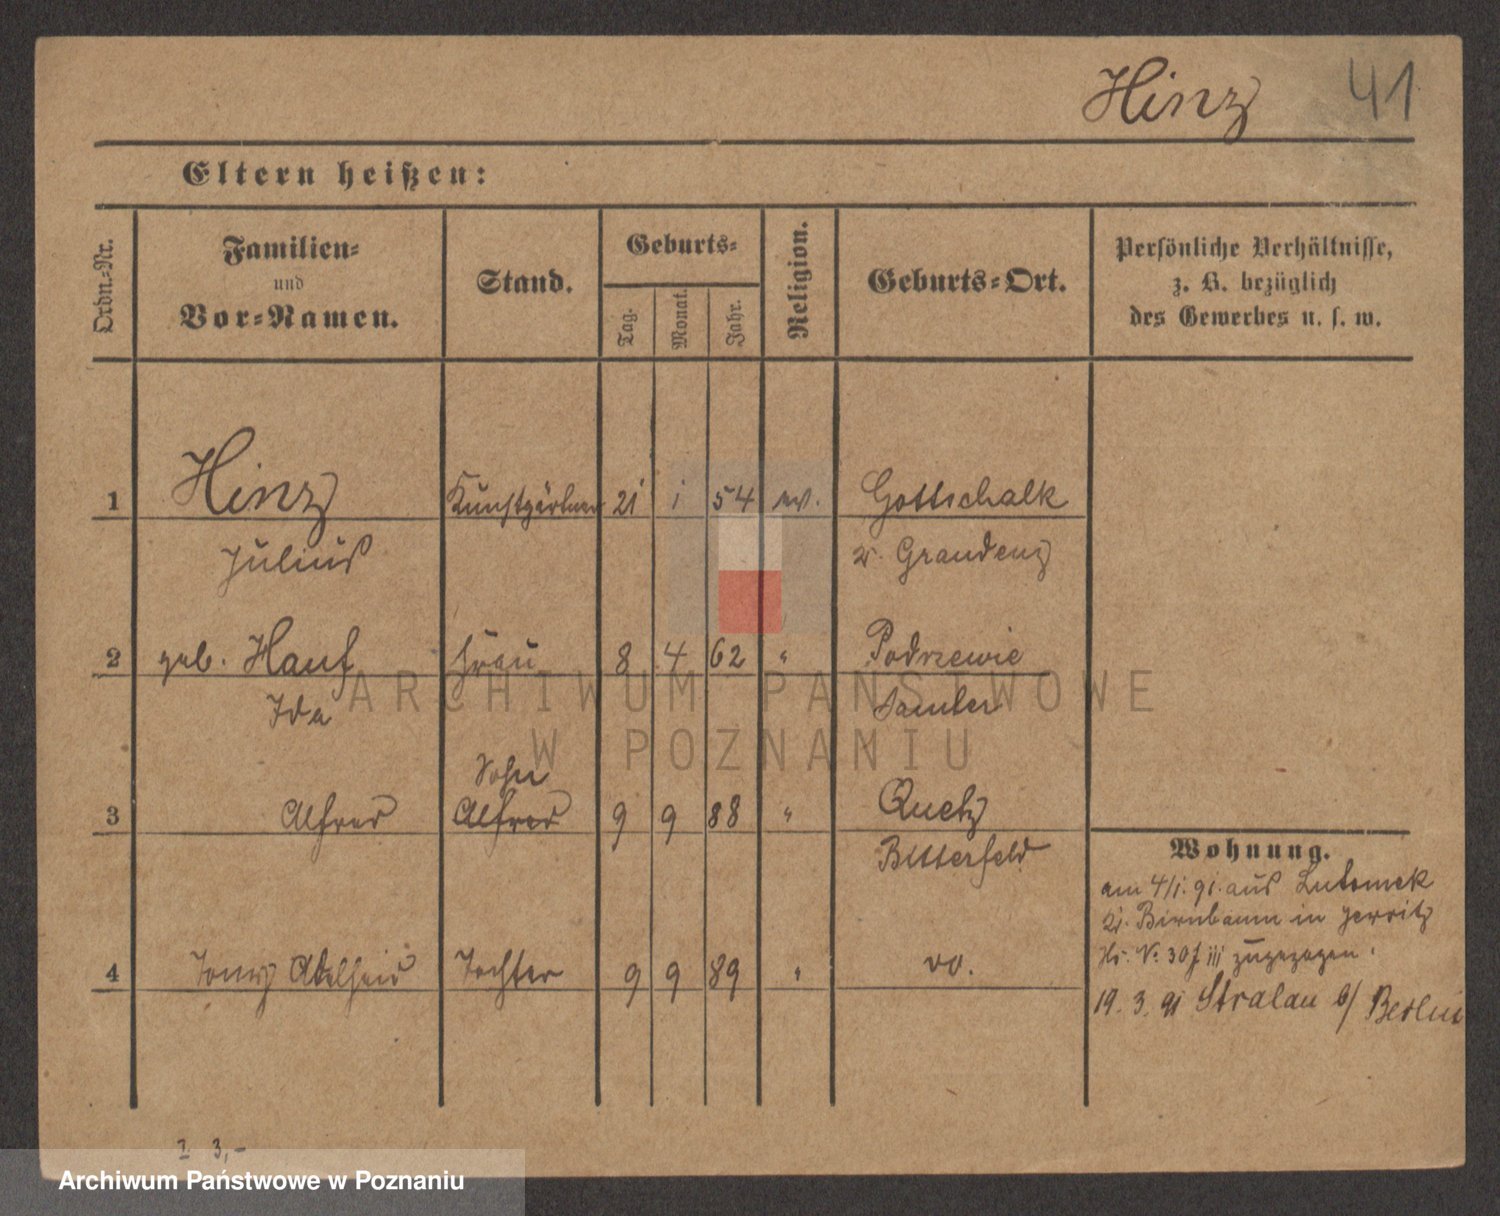 Hinz 41
Eltern heißen:
Ordn.-Nr.
Familien-
und
Vor-Namen.
Stand.
Geburts-
Tag.
Monat.
Jahr.
Religion.
Geburts-Ort.
Persönliche Verhältnisse,
z. B. bezüglich
des Gewerbes u. s. w.
1 Hinz Kunstgärtner 21 1 54 ev. Gottschalk
Julius Kr. Graudenz
2 geb. Hauf Frau 8 4 62 " Podrzewie
Ida Samter
Sohn
3 Alfred Alfred 9 9 88 " Quetz
Bitterfeld
Wohnung.
am 4/1. 91. aus Lutomek
Kr. Birnbaum in Jersitz
Hs. N. 30 f III zugezogen.
4 Tony Adelheid Tochter 9 9 89 " do.
19. 3. 91 Stralau b/ Berlin
I 3,-
ARCHIWUM PAŃSTWOWE
W POZNANIU
Archiwum Państwowe w Poznaniu